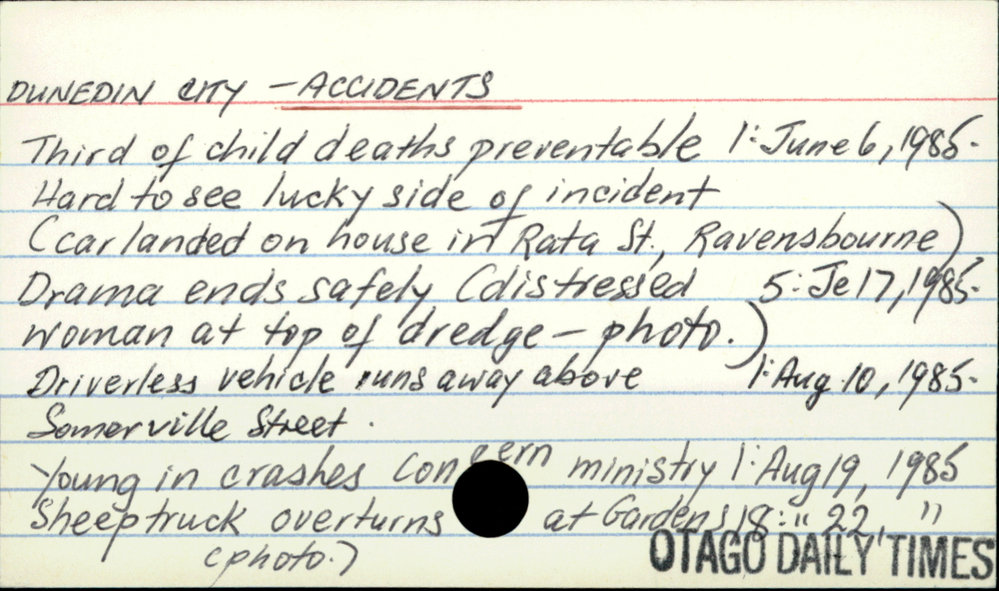 DUNEDIN CITY - ACCIDENTS
Third of child deaths preventable 1: June 6, 1985.
Hard to see lucky side of incident
(car landed on house in Rata St., Ravensbourne)
Drama ends safely (distressed 5: Je 17, 1985.
woman at top of dredge - photo.)
Driverless vehicle runs away above 1: Aug. 10, 1985.
Somerville Street.
Young in crashes concern ministry 1: Aug 19, 1985
Sheep truck overturns at Gardens 18: " 22, "
(photo.)
OTAGO DAILY TIMES